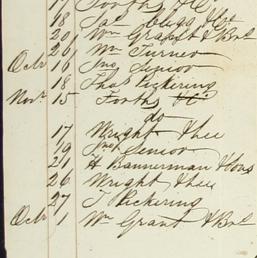 17 Tooths
18 Jas Clegg & Co
20 Wm Grant & Bro
26 Wm Turner
Octr 16 Jno Senior
18 Thos Pickering
Novr 15 Tooths
do
17 Wright & Lee
19 Jno Senior
21 H Bannerman & Sons
26 Wright & Lee
27 T Pickering
Octr 1 Wm Grant & Bro